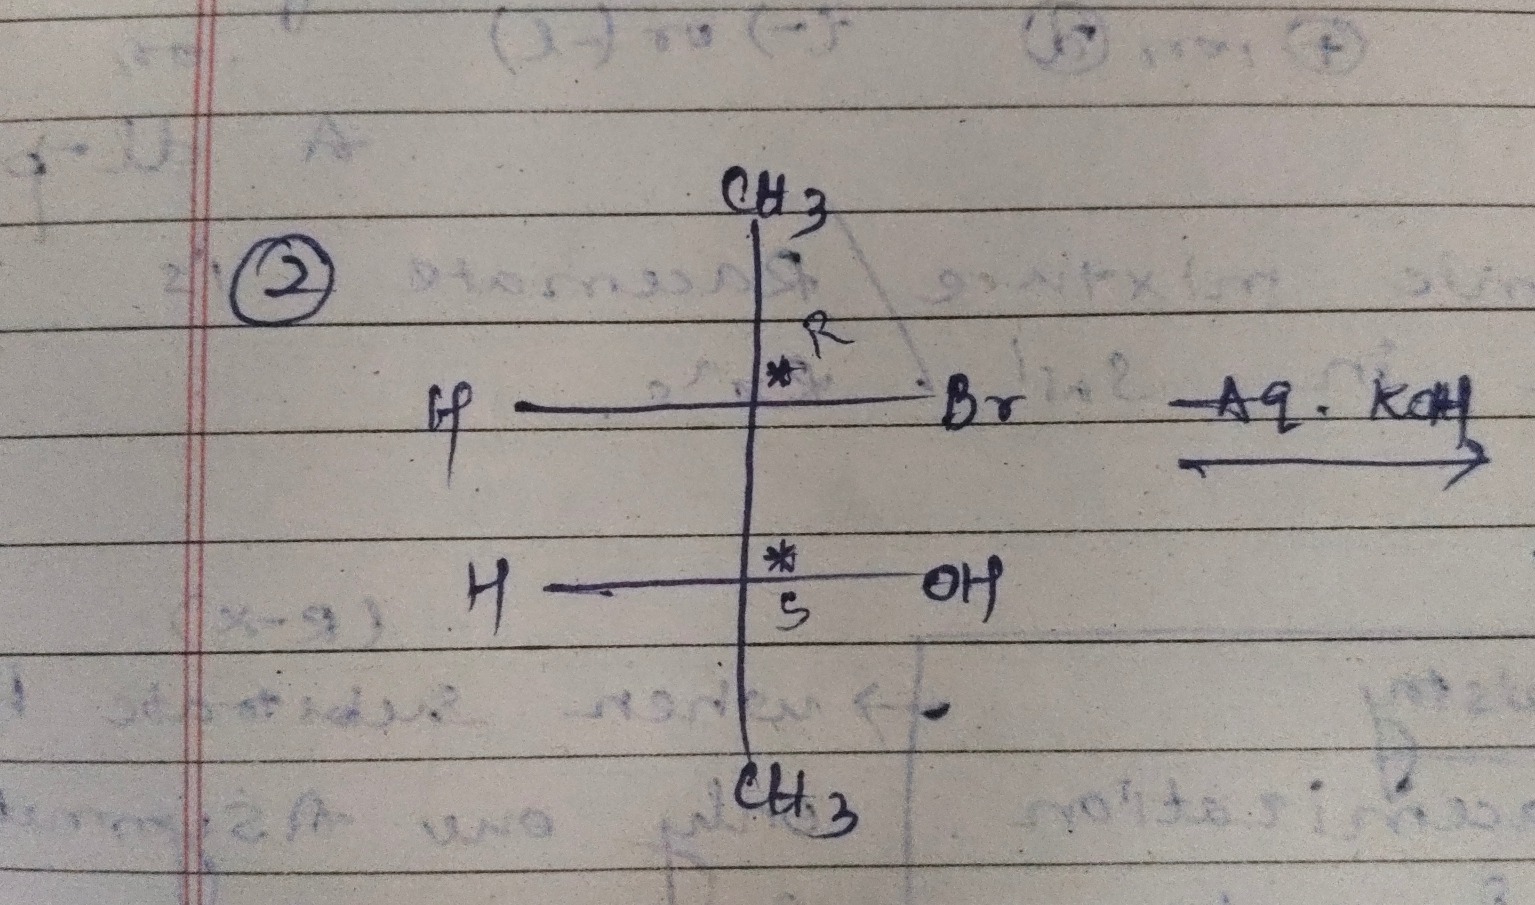 CH3
②
R
*
H Br Aq. KOH
*
H OH
S
CH3